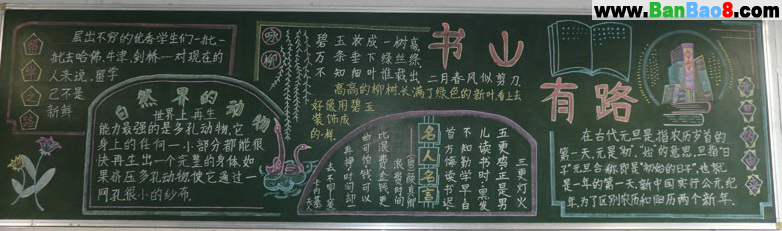 www.BanBao8.com
留学已不是新鲜
层出不穷的优秀学生们一批一
批去哈佛、牛津、剑桥……对现在的
人来说,留学
已不是
新鲜
自然界的动物
世界上再生
能力最强的是多孔动物,它
身上的任何一小部分都能很
快再生出一个完整的身体,如
果挤压多孔动物,使它通过一
网孔很小的纱布
咏柳
碧玉妆成一树高
万条垂下绿丝绦
不知细叶谁裁出
二月春风似剪刀
高高的柳树,长满了绿色的新叶,看上去
好像用碧玉
装饰成
的一样
书山有路
名人名言
三更灯火
五更鸡正是男
儿读书时,黑发
不知勤学早,白
首方悔读书迟
(唐)颜真卿
浪费时间
比浪费金钱更
可怕
在古代元旦是指农历岁首的
第一天,元是"初"、"始"的意思,旦指"日
子"元旦合称即是"初始的日子",也就
是一年的第一天,新中国实行公元纪
年,为了区别农历和旧历两个新年